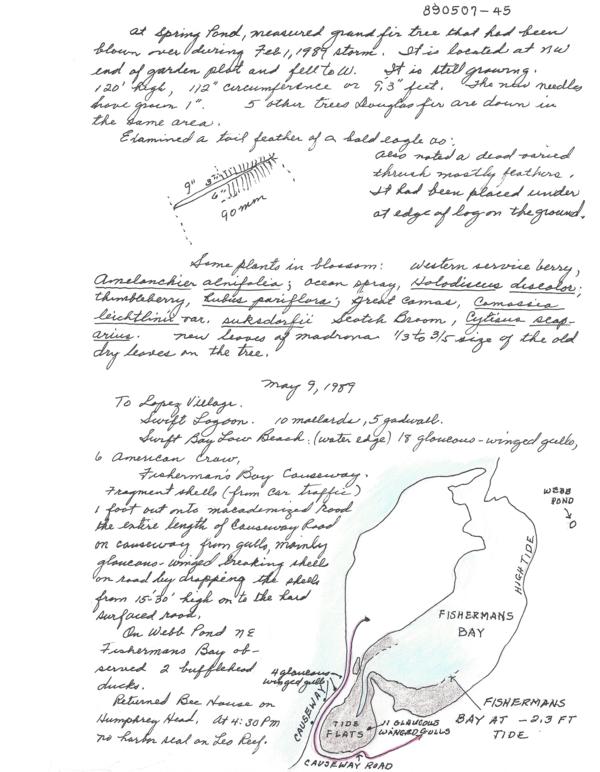 890507-45
At Spring Pond, measured grand fir tree that had been
blown over during Feb 1, 1989 storm. It is located at NW
end of garden plot and fell to W. It is still growing.
120' high, 112" circumference or 9.3" feet. The new needles
have grown 1". 5 other trees Douglas fir are down in
the same area.
Examined a tail feather of a bald eagle as:
9" 3"
6"
90 mm
Also noted a dead varied
thrush mostly feathers.
It had been placed under
at edge of log on the ground.
Some plants in blossom: Western service berry,
Amelanchier alnifolia; ocean spray, Holodiscus discolor;
thimbleberry, Rubus pariflora; Great Camas, Camassia
leichtlinii var. suksdorfii Scotch Broom, Cytisus scop-
arius. New leaves of madrona 1/3 to 3/5 size of the old
dry leaves on the tree.
May 9, 1989
To Lopez Village.
Swift Lagoon. 10 mallards, 5 gadwall.
Swift Bay Low Beach: (water edge) 18 glaucous-winged gulls,
6 American Crow,
Fisherman's Bay Causeway.
Fragment shells (from car traffic)
1 foot out onto macadamized road
the entire length of Causeway Road
on causeway from gulls, mainly
glaucous-winged breaking shells
on road by dropping the shells
from 15'-30' high on to the hard
surfaced road.
On Webb Pond NE
Fishermans Bay ob-
served 2 bufflehead
ducks.
Returned Bee House on
Humphrey Head, at 4:30 PM
no harbor seal on Leo Reef.
WEBB
POND
HIGH TIDE
FISHERMANS
BAY
4 glaucous-
winged gulls
CAUSEWAY
TIDE
FLATS
11 GLAUCOUS
WINGED GULLS
FISHERMANS
BAY AT -2.3 FT
TIDE
CAUSEWAY ROAD